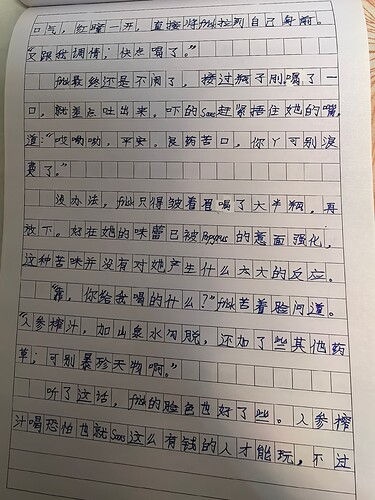 口气，红瞳一开，直接将frisk拉到自己身前。
“又跟我调情；快点喝了。”
frisk最终还是不闹了，接过瓶子刚喝了一
口，就差点吐出来，吓的Sans赶紧捂住她的嘴，
道：“哎呦呦，平安。良药苦口，你丫可别浪
费了。”
没办法，frisk只得皱着眉喝了大半瓶，再
放下。好在她的味蕾已被Papyrus的意面强化，
这种苦味并没有对她产生什么太大的反应。
“靠，你给我喝的什么？”frisk苦着脸问道。
“人参榨汁，加山泉水勾兑，还加了些其他药
草；可别暴殄天物啊。”
听了这话，frisk的脸色也好了些。人参榨
汁喝恐怕也就Sans这么有钱的人才能玩，不过